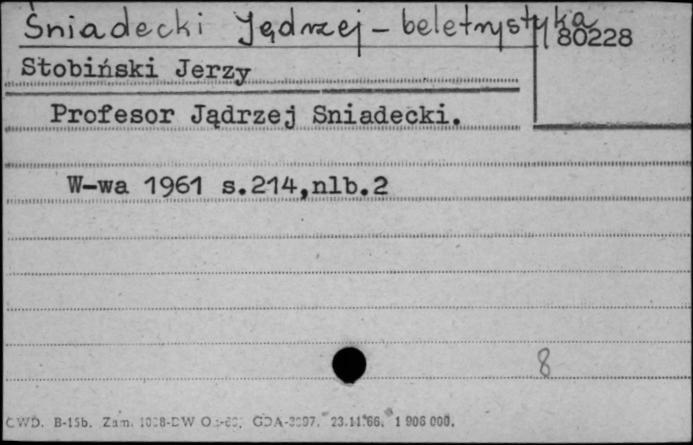 Śniadecki Jędrzej - beletrystyka
80228
Stobiński Jerzy
Profesor Jądrzej Sniadecki.
W-wa 1961 s.214,nlb.2
8
CWD. B-15b. Zam. GDA- 23.11.66. 1 906 000.